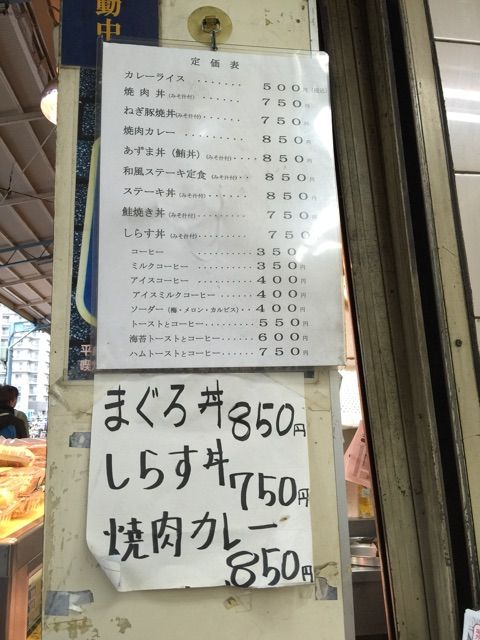 動中
定価表
カレーライス ....... 500円(税込)
焼肉丼(みそ汁付) ....... 750円
ねぎ豚焼丼(みそ汁付) ....... 750円
焼肉カレー ........... 850円
あずま丼(鮪丼)(みそ汁付) .... 850円
和風ステーキ定食(みそ汁付) .. 850円
ステーキ丼(みそ汁付) ....... 850円
鮭焼き丼(みそ汁付) ......... 750円
しらす丼(みそ汁付) ......... 750円
コーヒー ........... 350円
ミルクコーヒー ....... 350円
アイスコーヒー ....... 400円
アイスミルクコーヒー .... 400円
ソーダー(梅・メロン・カルピス) ... 400円
トーストとコーヒー ..... 550円
海苔トーストとコーヒー ... 600円
ハムトーストとコーヒー ... 750円
まぐろ丼 850円
しらす丼 750円
焼肉カレー 850円